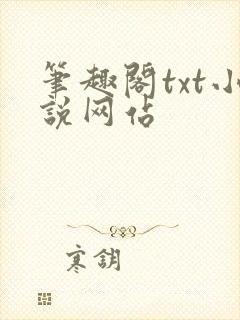 筆趣閣txt小
説网佔
寒鈅